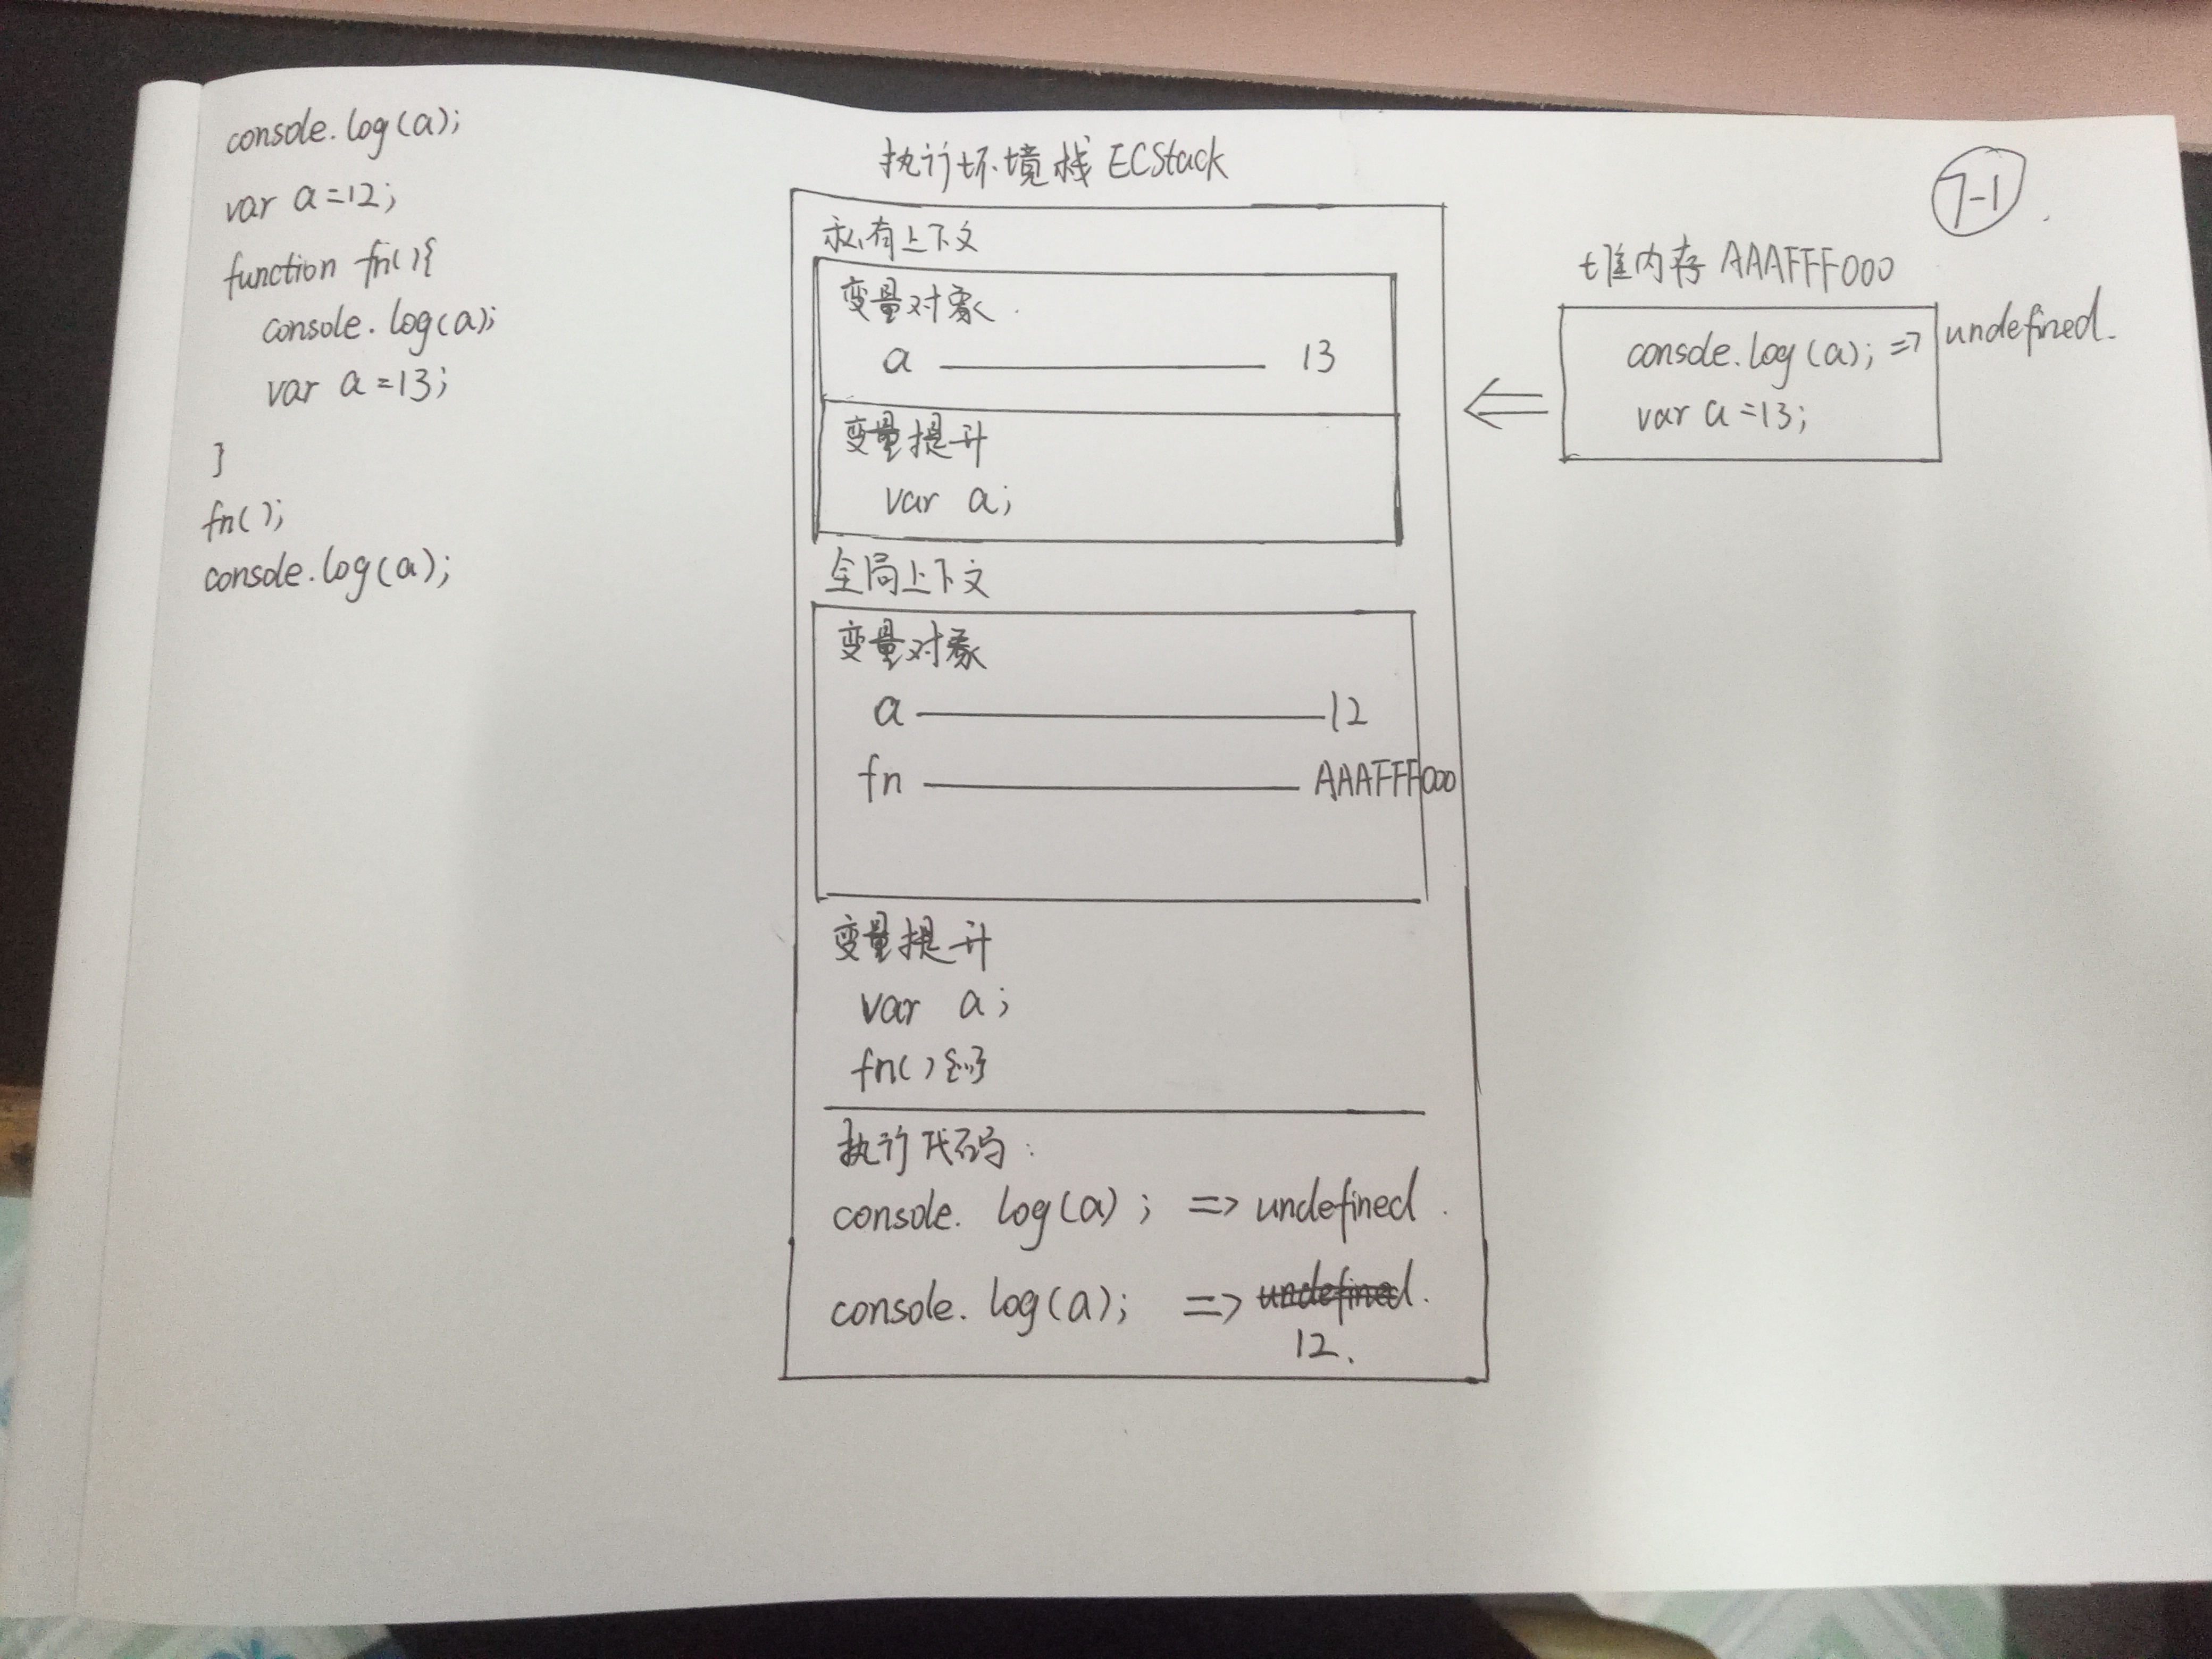 console.log(a);
var a=12;
function fn(){
console.log(a);
var a=13;
}
fn();
console.log(a);
执行环境栈 ECStack
私有上下文
变量对象
a 13
变量提升
var a;
全局上下文
变量对象
a 12
fn AAAFFF000
变量提升
var a;
fn(){...}
执行代码:
console.log(a); => undefined.
console.log(a); => undefined.
12.
7-1
堆内存 AAAFFF000
console.log(a); => undefined.
var a=13;